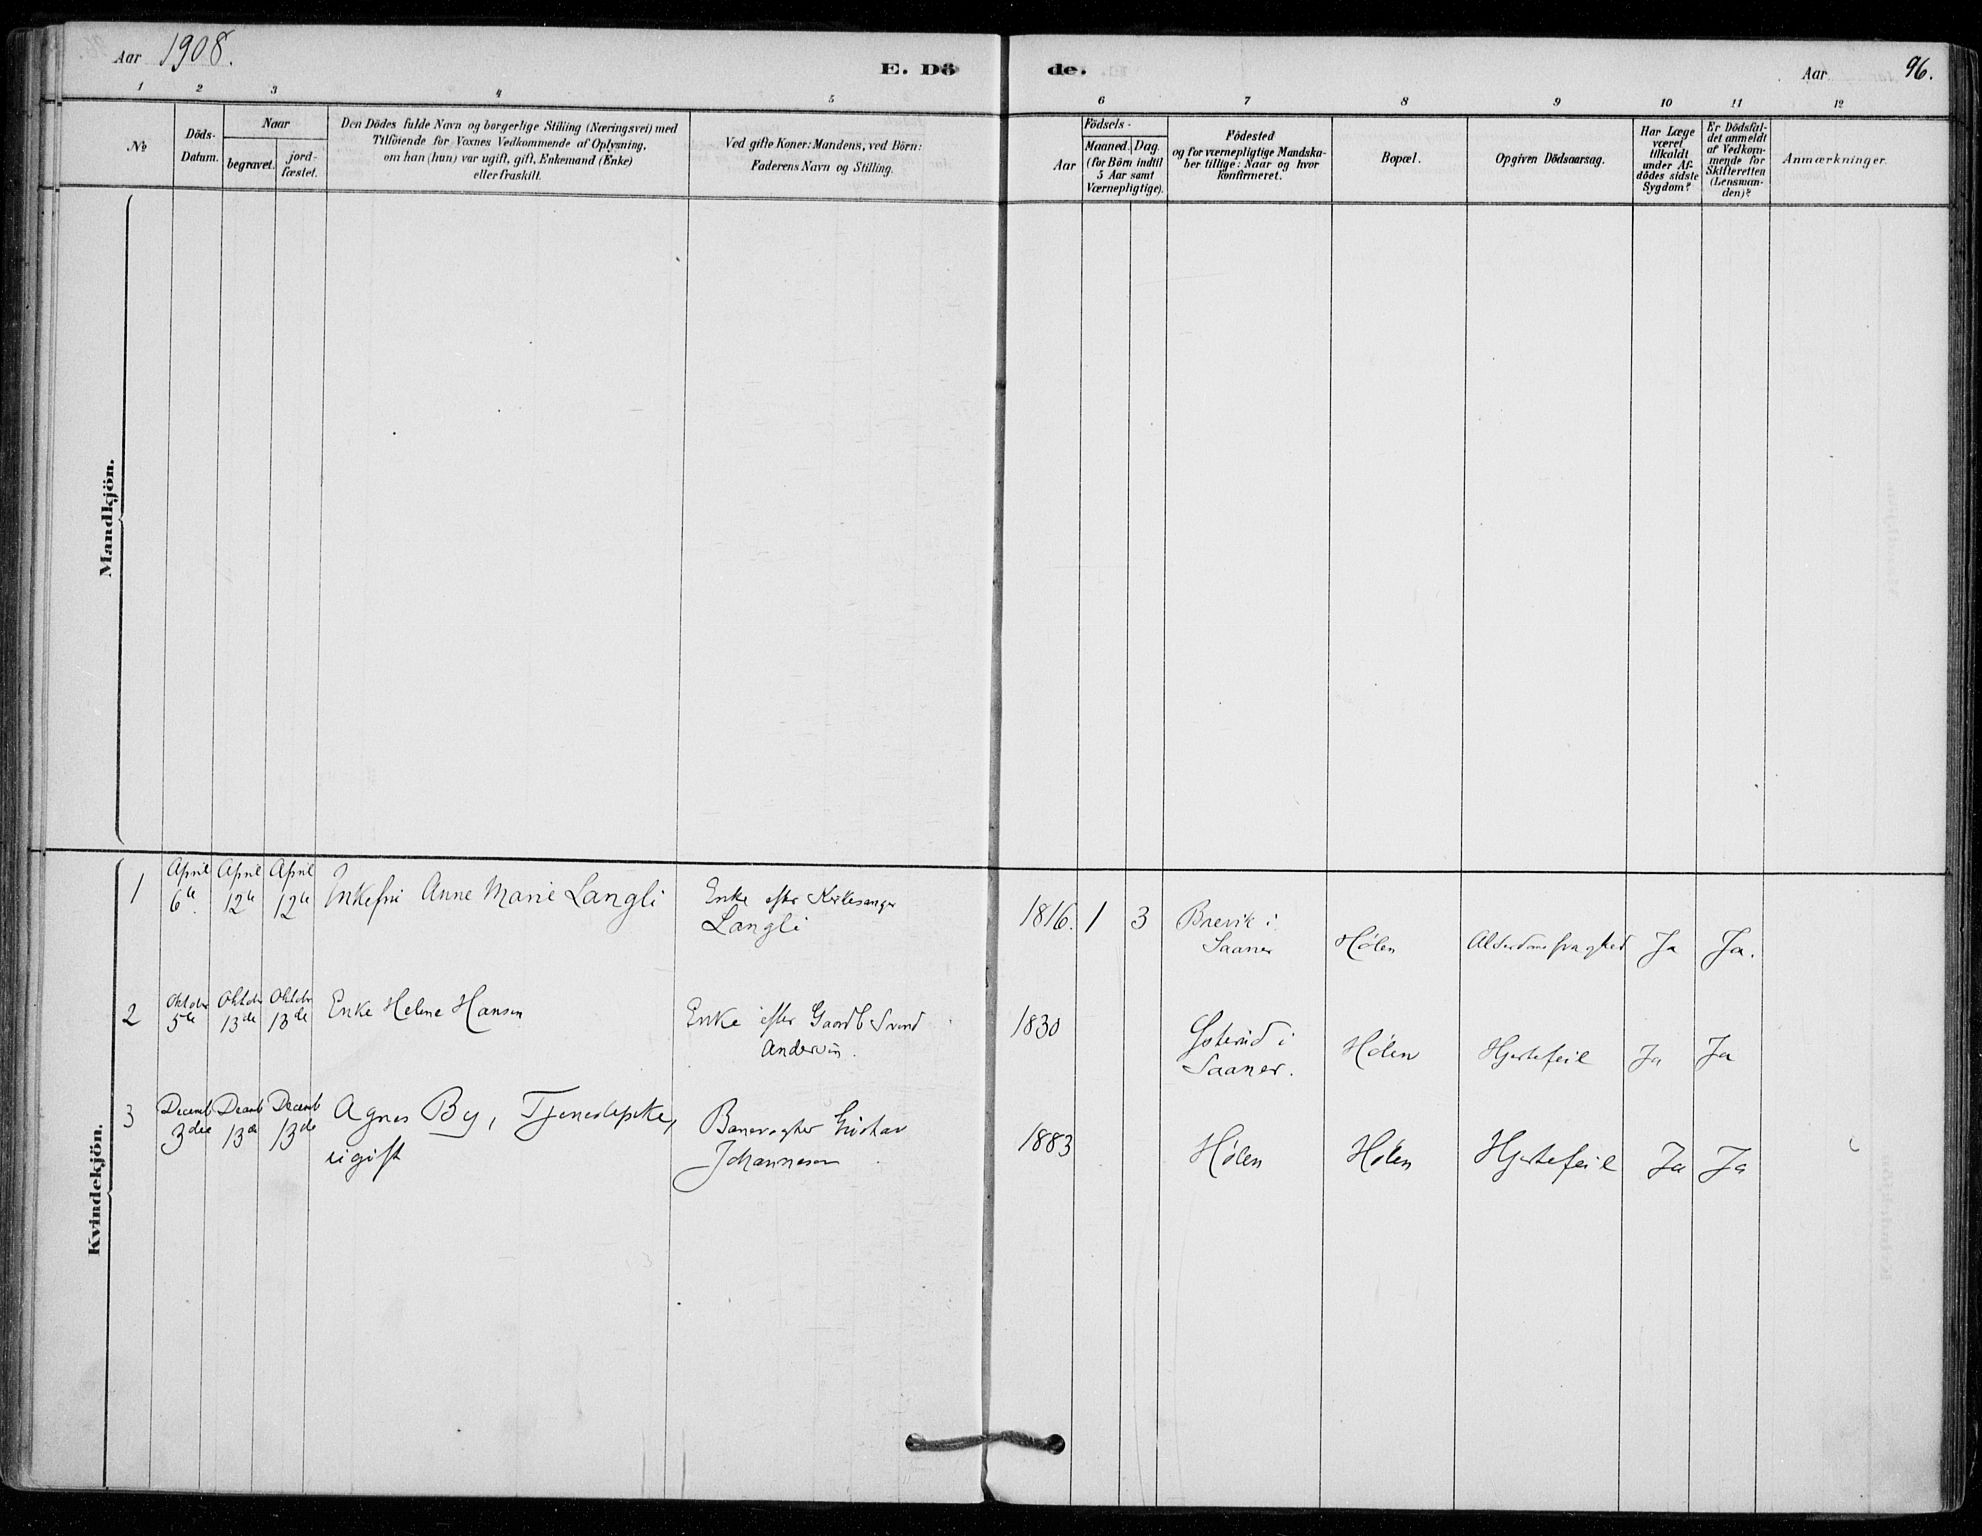 Aar 1908.
E. Dö
de.
Aar
96.
1 2 3 4 5 6 7 8 9 10 11 12
№
Döds-
Datum.
Naar
begravet.
jord-
fæstet.
Den Dödes fulde Navn og borgerlige Stilling (Næringsvei) med
Tilföiende for Voxnes Vedkommende af Oplysning,
om han (hun) var ugift, gift, Enkemand (Enke)
eller fraskilt.
Ved gifte Koner: Mandens, ved Börn:
Faderens Navn og Stilling.
Födsels-
Aar
Maaned. Dag.
(for Börn indtil
5 Aar samt
Værnepligtige).
Födested
og for værnepligtige Mandska-
ber tillige: Naar og hvor
konfirmeret.
Bopæl.
Opgiven Dödsaarsag.
Har Læge
været
tilkaldt
under Af-
dödes sidste
Sygdom?
Er Dödsfal-
det anmeldt
af Vedkom-
mende for
Skifteretten
(Lensman-
den)?
Anmærkninger.
Mandkjön.
Kvindekjön.
1
April
6te
April
12te
April
12te
Enkefru Anne Marie Langli
Enke efter Kirkesanger
Langli
1816. 1 3
Brevik i
Saaner
Hølen
Alderdomssvaghed
Ja
Ja.
2
Oktober
5te
Oktober
13de
Oktober
13de
Enke Helene Hansen
Enke efter Gaardb Svend
Andersen.
1830
Saaner.
Hølen
Hjertefeil
Ja
Ja
3
Decemb
3die
Decemb
13de
Decemb
13de
Agnes By, Tjenestepike,
ugift
Banevogter Gustav
Johannesen
1883
Hølen
Hølen
Hjertefeil
Ja
Ja